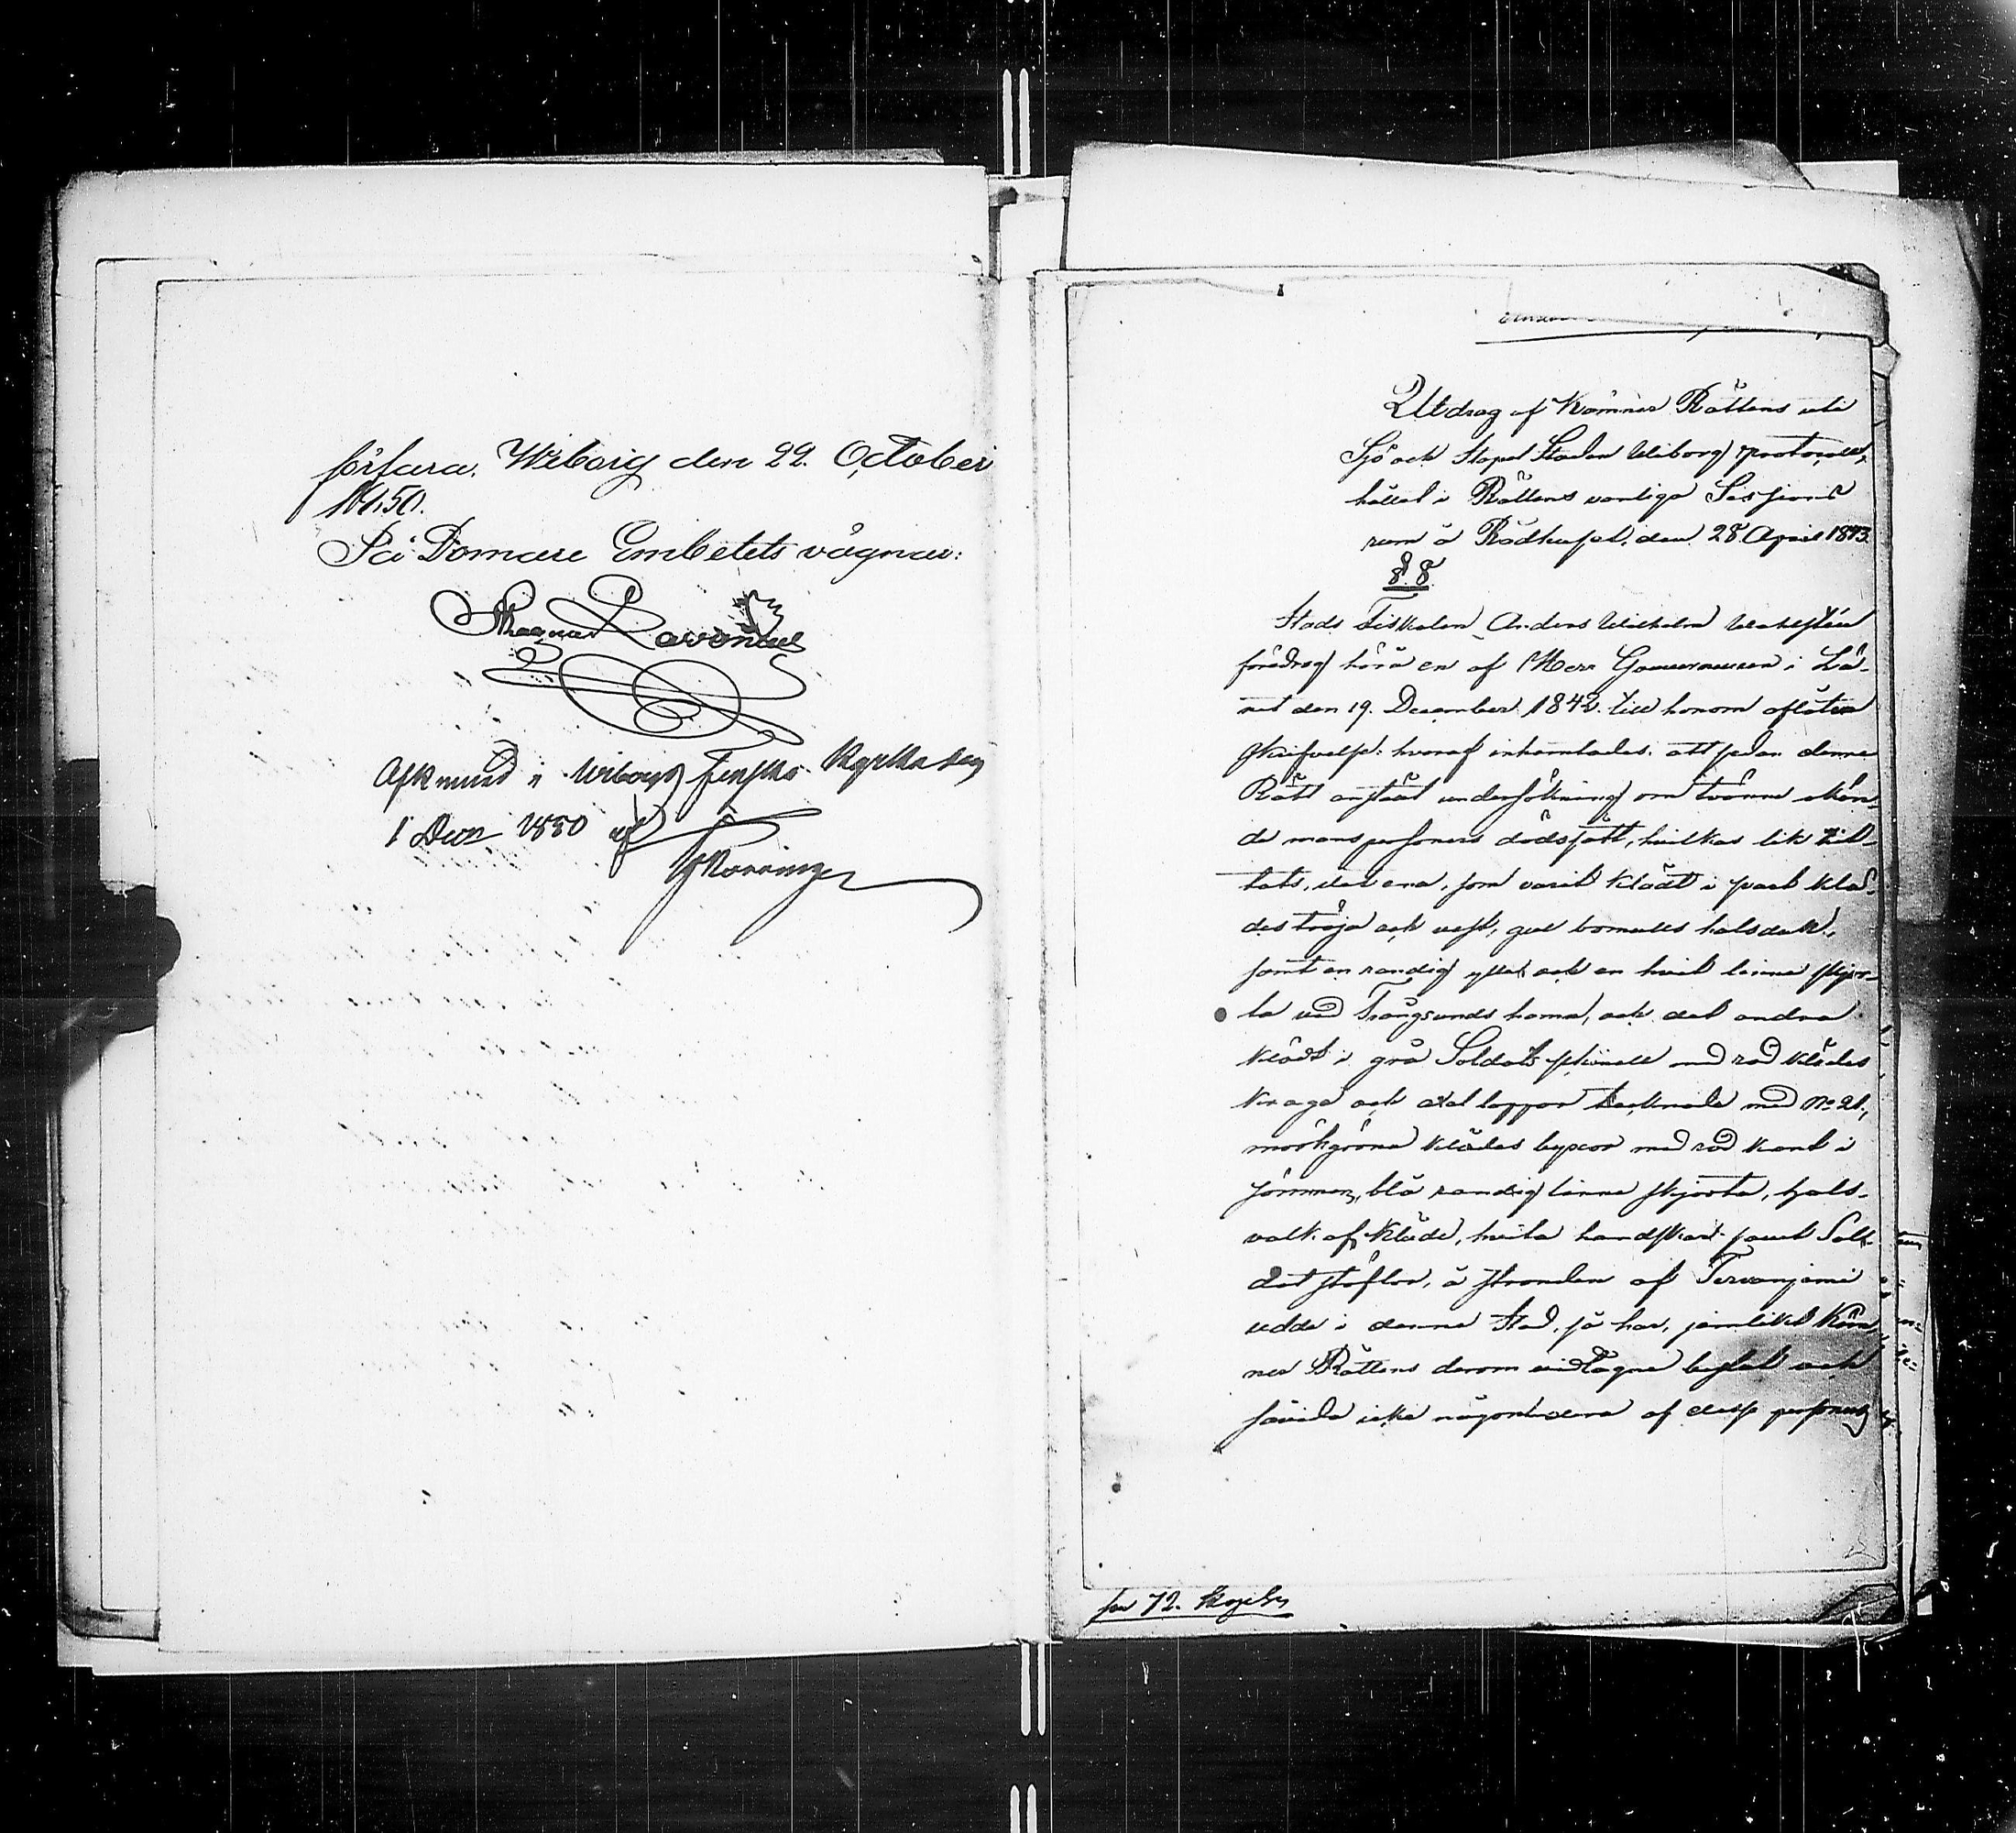 förfara. Wiborg den 22. October
1850.
På Domare Embetets vägnar:
Afkunnad i Wiborgs Finska Kyrka den
1 Decr 1850 af
Utdrag af Kämners Rättens uti
Sjö och Stapel Staden Wiborg protocoll,
hållet i Rättens vanliga Sessions
rum å Rådhuset, den 28. April 1843.
§. 8.
Stads Fiskalen Anders Wilhelm Wahlstén
föredrog höra en af Herr Gouverneuren i Lä-
net den 19. December 1842. till honom aflåten
skrifvelse. hvaraf inhemtades. att sedan denne
Rätt anstält undersökning om tvänne okän-
de mans personers dödssätt, hvilkas lik hit-
tats, det ena, som varit klädt i svart klä-
des tröja och vest, gul bomulls halsduk,
samt en randig ylle och en hvit linne skjor-
ta vid Trångsunds hamn, och det andra
klädt i grå Soldats schinell med röd klädes
krage och axel lappar tecknade med No 21,
mörkgröna klädes byxor med röd kant i
sömmen, blå randig linne skjorta, hals-
valk af kläde, hvita handskar samt Sol-
dat stöflor, å stranden af Tervaniemi
udde i denna Stad, så har, jemlikt Käm-
ners Rättens derom vidtagne beslut och
såvida icke någondera af dess personers
for 72. Kop. Sr